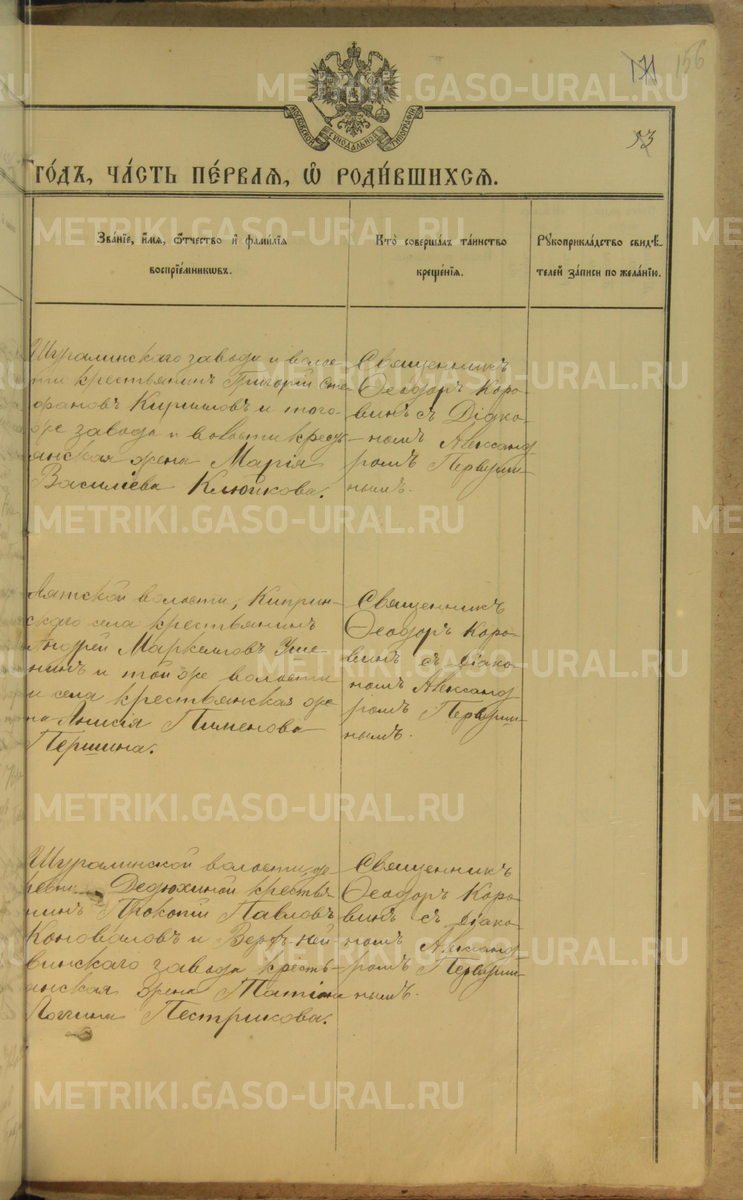 171 156
МОСКОВСКОЙ СѴНОДАЛЬНОЙ ТИПОГРАФІИ
53
ГОДЪ, ЧАСТЬ ПЕ́РВАЯ, Ѡ РОДИ́ВШИХСЯ.
Зва́нїе, и́мѧ, ѻ҆́тчество и҆ фами́лїѧ
воспрїе́мникѡвъ.
Кто̀ соверша́лъ та́инство
креще́нїѧ.
Рꙋкоприкла́дство свидѣ́-
телей за́писи по жела́нїю.
Шуралинскаго завода и воло-
сти крестьянинъ Григорій Сте
фановъ Кирилловъ и того-
же завода и волости кресть
янская жена Марія
Василіева Клюйкова.
Священникъ
Ѳеодоръ Коро
винъ съ Діако-
номъ Александ
ромъ Первуши-
нымъ.
Аятской волости, Киприн-
скаго села крестьянинъ
Андрей Маркелловъ
и той же волости
и села крестьянская же
на Анисія Пименова
Першина.
Священникъ
Ѳеодоръ Коро
винъ съ діако
номъ Александ
ромъ Первуши-
нымъ.
Шуралинской волости, де
ревни Дедюхиной кресть
нинъ Прокопій Павловъ
Коноваловъ и Верх-Ней
винскаго завода кресть-
янская жена Татіана
Пестрикова.
Священникъ
Ѳеодоръ Коро
винъ съ діако
номъ Александ
ромъ Первуши-
нымъ.
METRIKI.GASO-URAL.RU